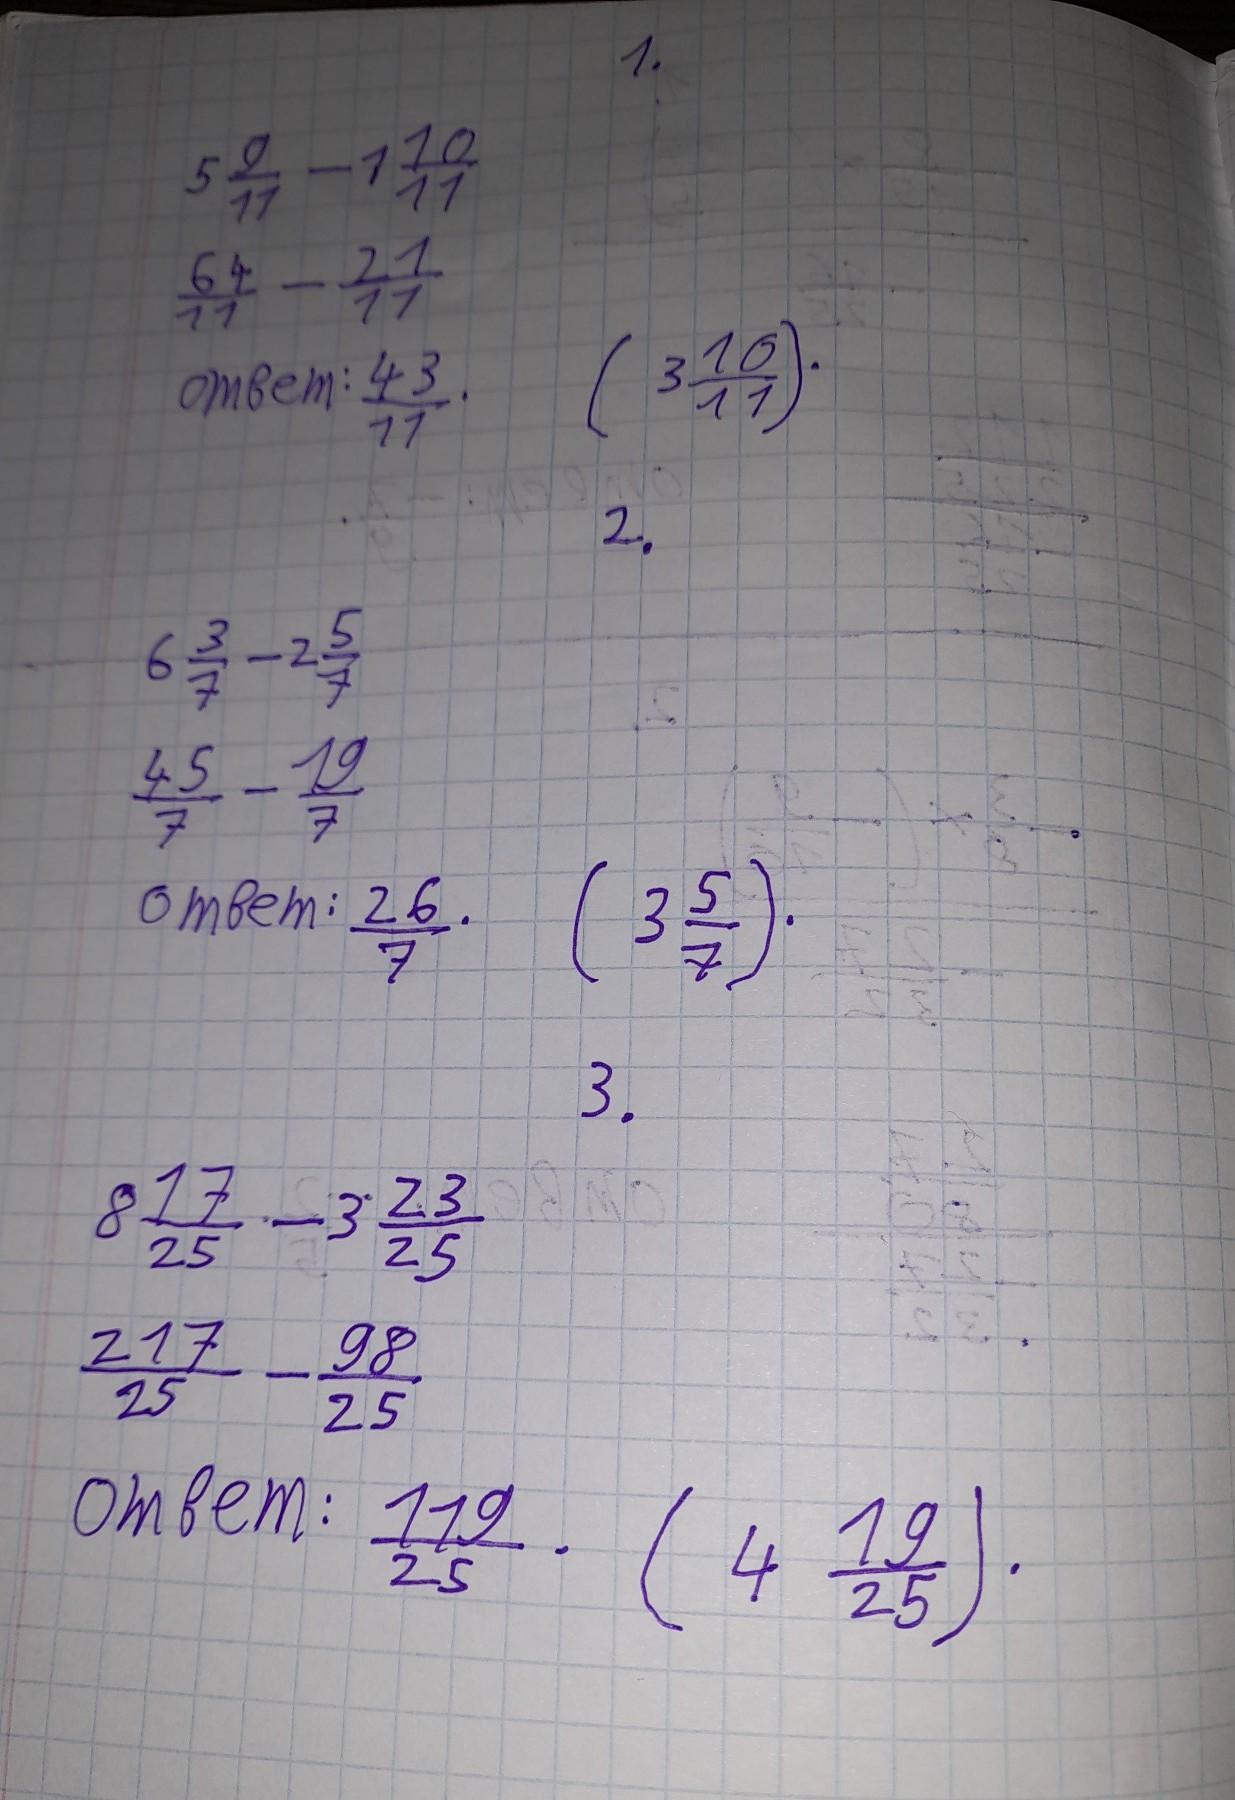 1.
5 9/11 − 1 10/11
64/11 − 21/11
ответ: 43/11. (3 10/11).
2.
6 3/7 − 2 5/7
45/7 − 19/7
ответ: 26/7. (3 5/7).
3.
8 17/25 − 3 23/25
217/25 − 98/25
ответ: 119/25. (4 19/25).